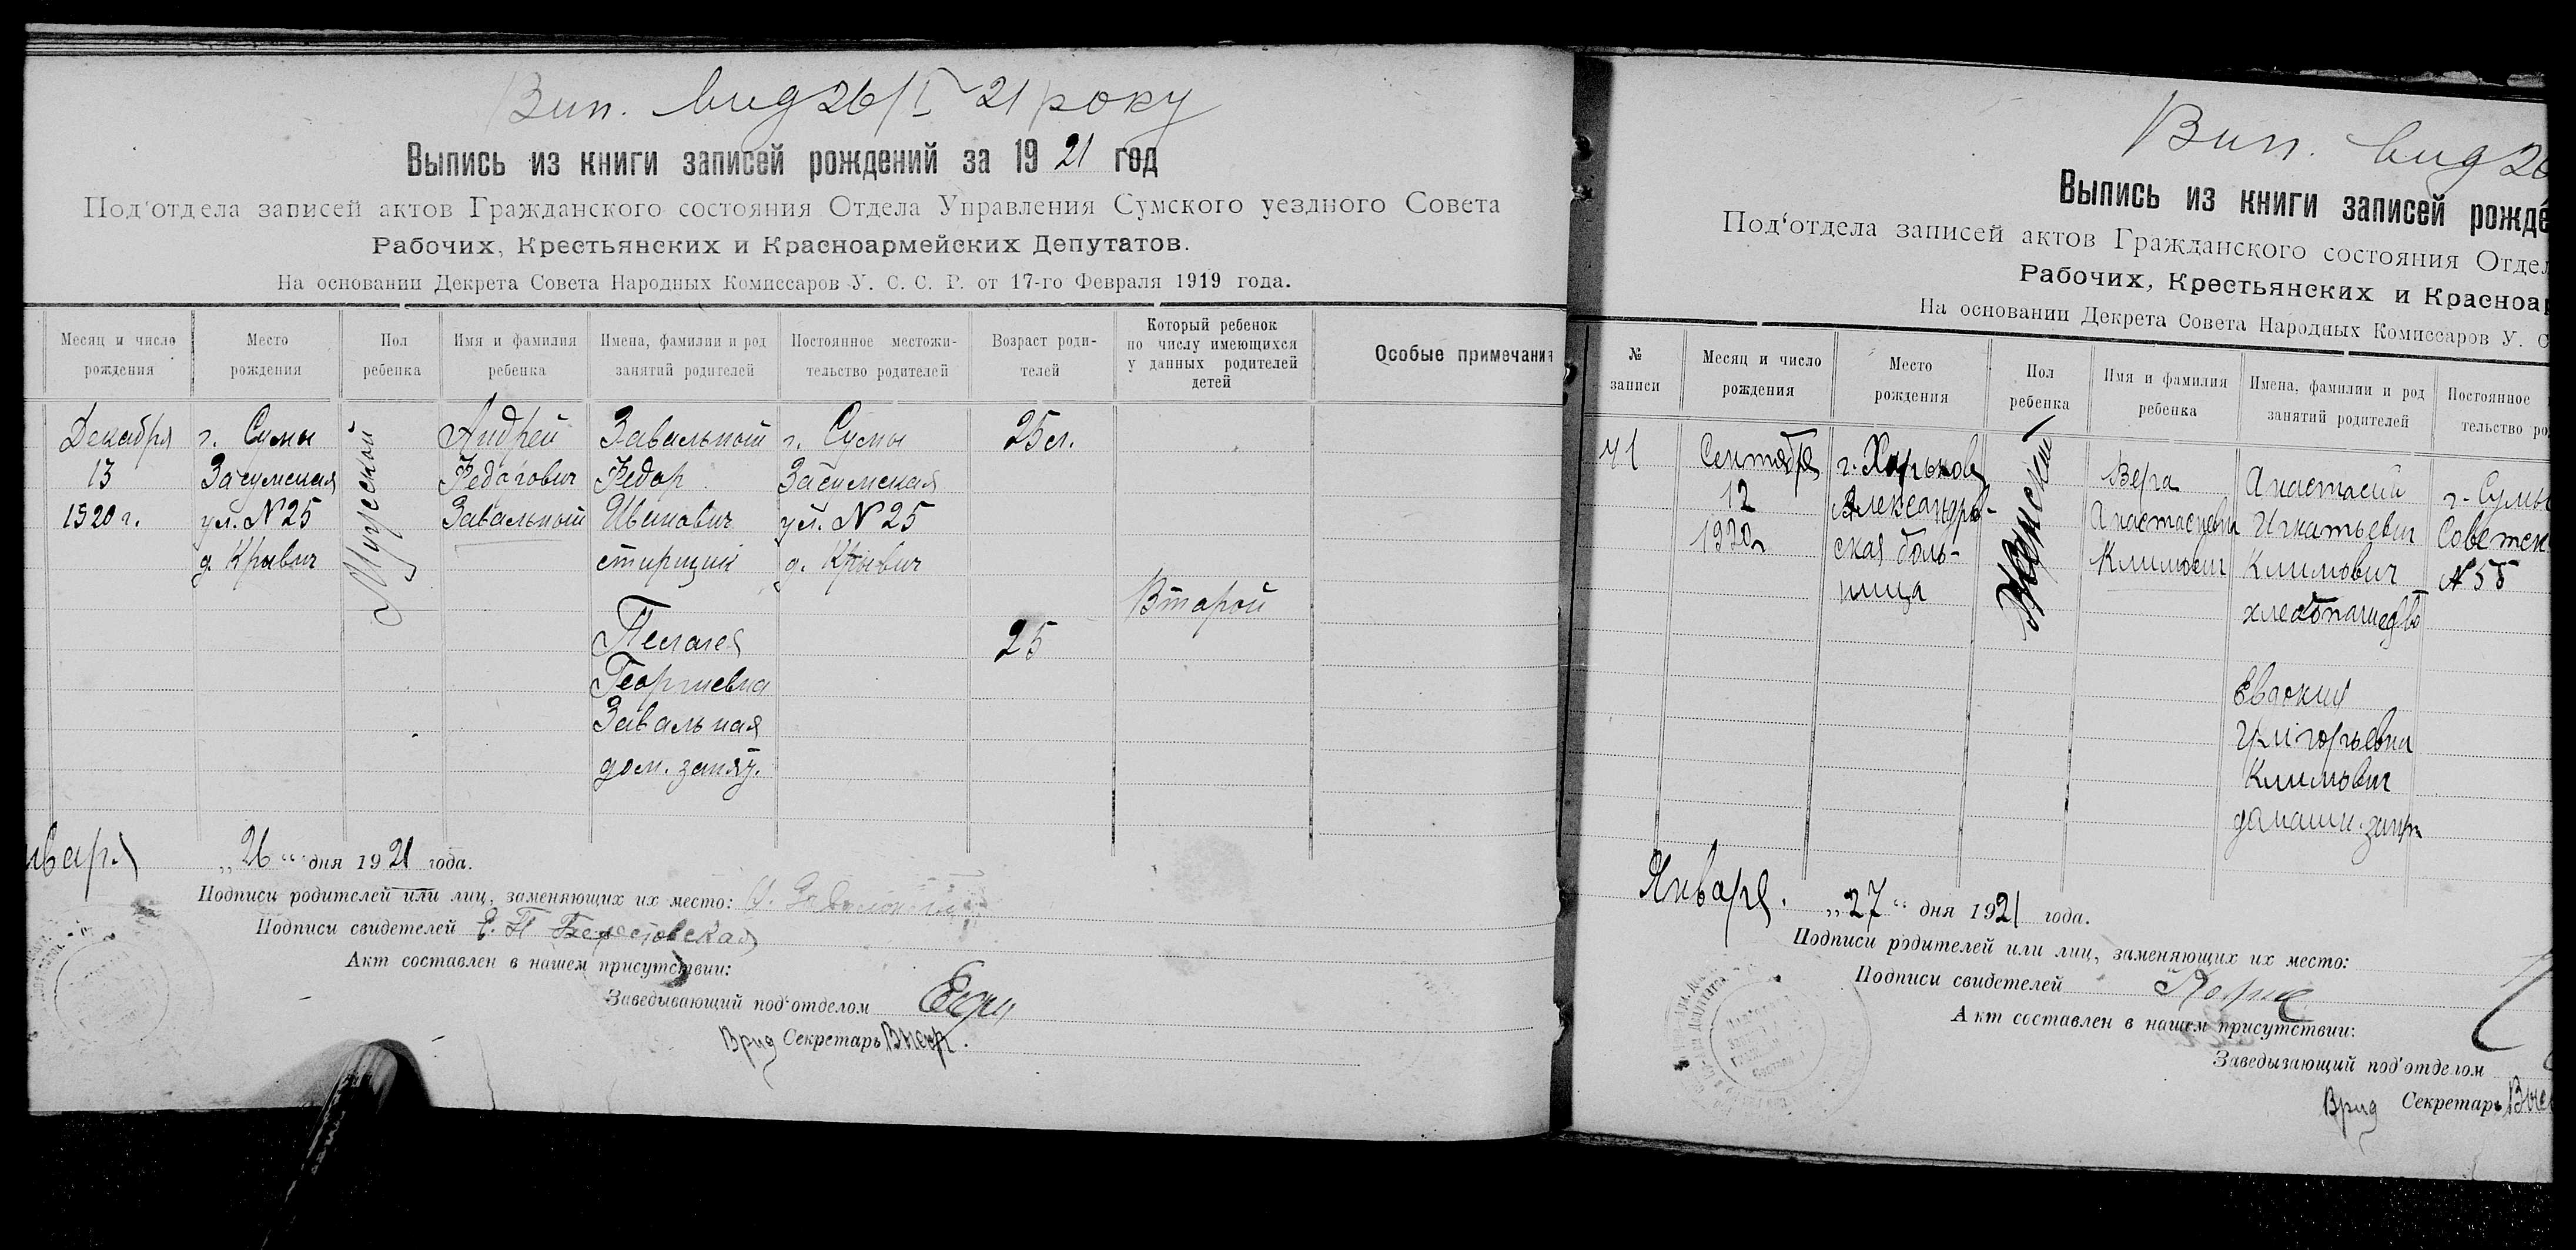 Вип. вид 26/I 21 року
Выпись из книги записей рождений за 1921 год
Под'отдела записей актов Гражданского состояния Отдела Управления Сумского уездного Совета
Рабочих, Крестьянских и Красноармейских Депутатов.
На основании Декрета Совета Народных Комиссаров У. С. С. Р. от 17-го Февраля 1919 года.
Месяц и число
рождения
Место
рождения
Пол
ребенка
Имя и фамилия
ребенка
Имена, фамилии и род
занятий родителей
Постоянное местожи-
тельство родителей
Возраст роди-
телей
Который ребенок
по числу имеющихся
у данных родителей
детей
Особые примечания
Декабря
13
1920 г.
г. Сумы
Засумская
ул. № 25
Мужеской
Андрей
Федорович
Завальный
Завальный
Федор
Иванович
Пелагея
Георгиевна
Завальная
дом. занят.
г. Сумы
Засумская
ул. № 25
25 л.
25
Второй
нваря „26“ дня 1921 года.
Подписи родителей или лиц, заменяющих их место:
Подписи свидетелей Е. П. Берестовская
Акт составлен в нашем присутствии:
Заведывающий под'отделом
Врид Секретарь
Вип. вид 26
Выпись из книги записей рожде
Под'отдела записей актов Гражданского состояния Отдел
Рабочих, Крестьянских и Красноар
На основании Декрета Совета Народных Комиссаров У. С
№
записи
Месяц и число
рождения
Место
рождения
Пол
ребенка
Имя и фамилия
ребенка
Имена, фамилии и род
занятий родителей
Постоянное
тельство ро
41
Сентября
12
1920 г.
г. Харьков
Александров-
ская боль-
ница
Женский
Вера
Анастасиевна
Климович
Анастасий
Игнатьевич
Климович
хлебопашество
Евдокия
Григорьевна
Климович
домашн. занят.
г. Сумы
Советск
№ 55
Января. „27“ дня 1921 года.
Подписи родителей или лиц, заменяющих их место:
Подписи свидетелей
Акт составлен в нашем присутствии:
Заведывающий под'отделом
Врид Секретарь